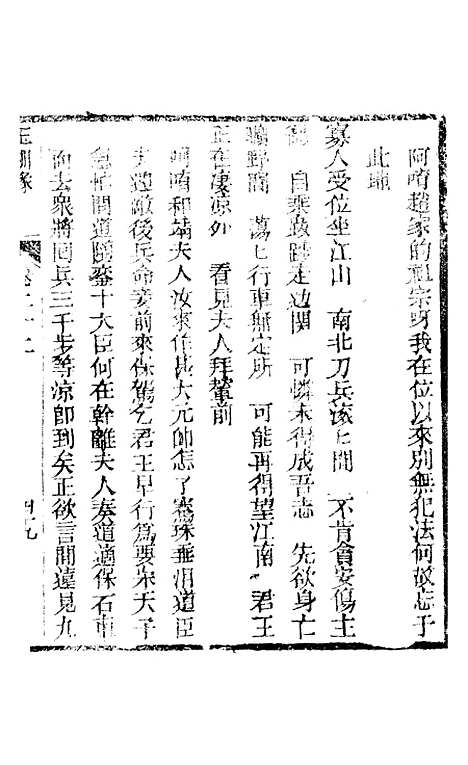 阿唷趙家的祖宗呀我在位以來別無犯法何故忘于
此地
寡人受位坐江山 南北刀兵滾匕間 不肯貪安傷主
自乘敗跡走边関 可憐未得成吾志 先欲身亡
野商 蕩匕行車無定所 可能再得望江南 君王
正在凄凉外 看見夫人拜輦前
唷和靖夫人汝來作甚大元帥怎了賽珠垂泪道臣
道敵後兵命妾前來保駕乞君王早行為要宋天子
急忙問道隨鑾十大臣何在幹離夫人奏道適保石車
向去衆將囘兵三千步等凉即到矣正欲言間遠見九